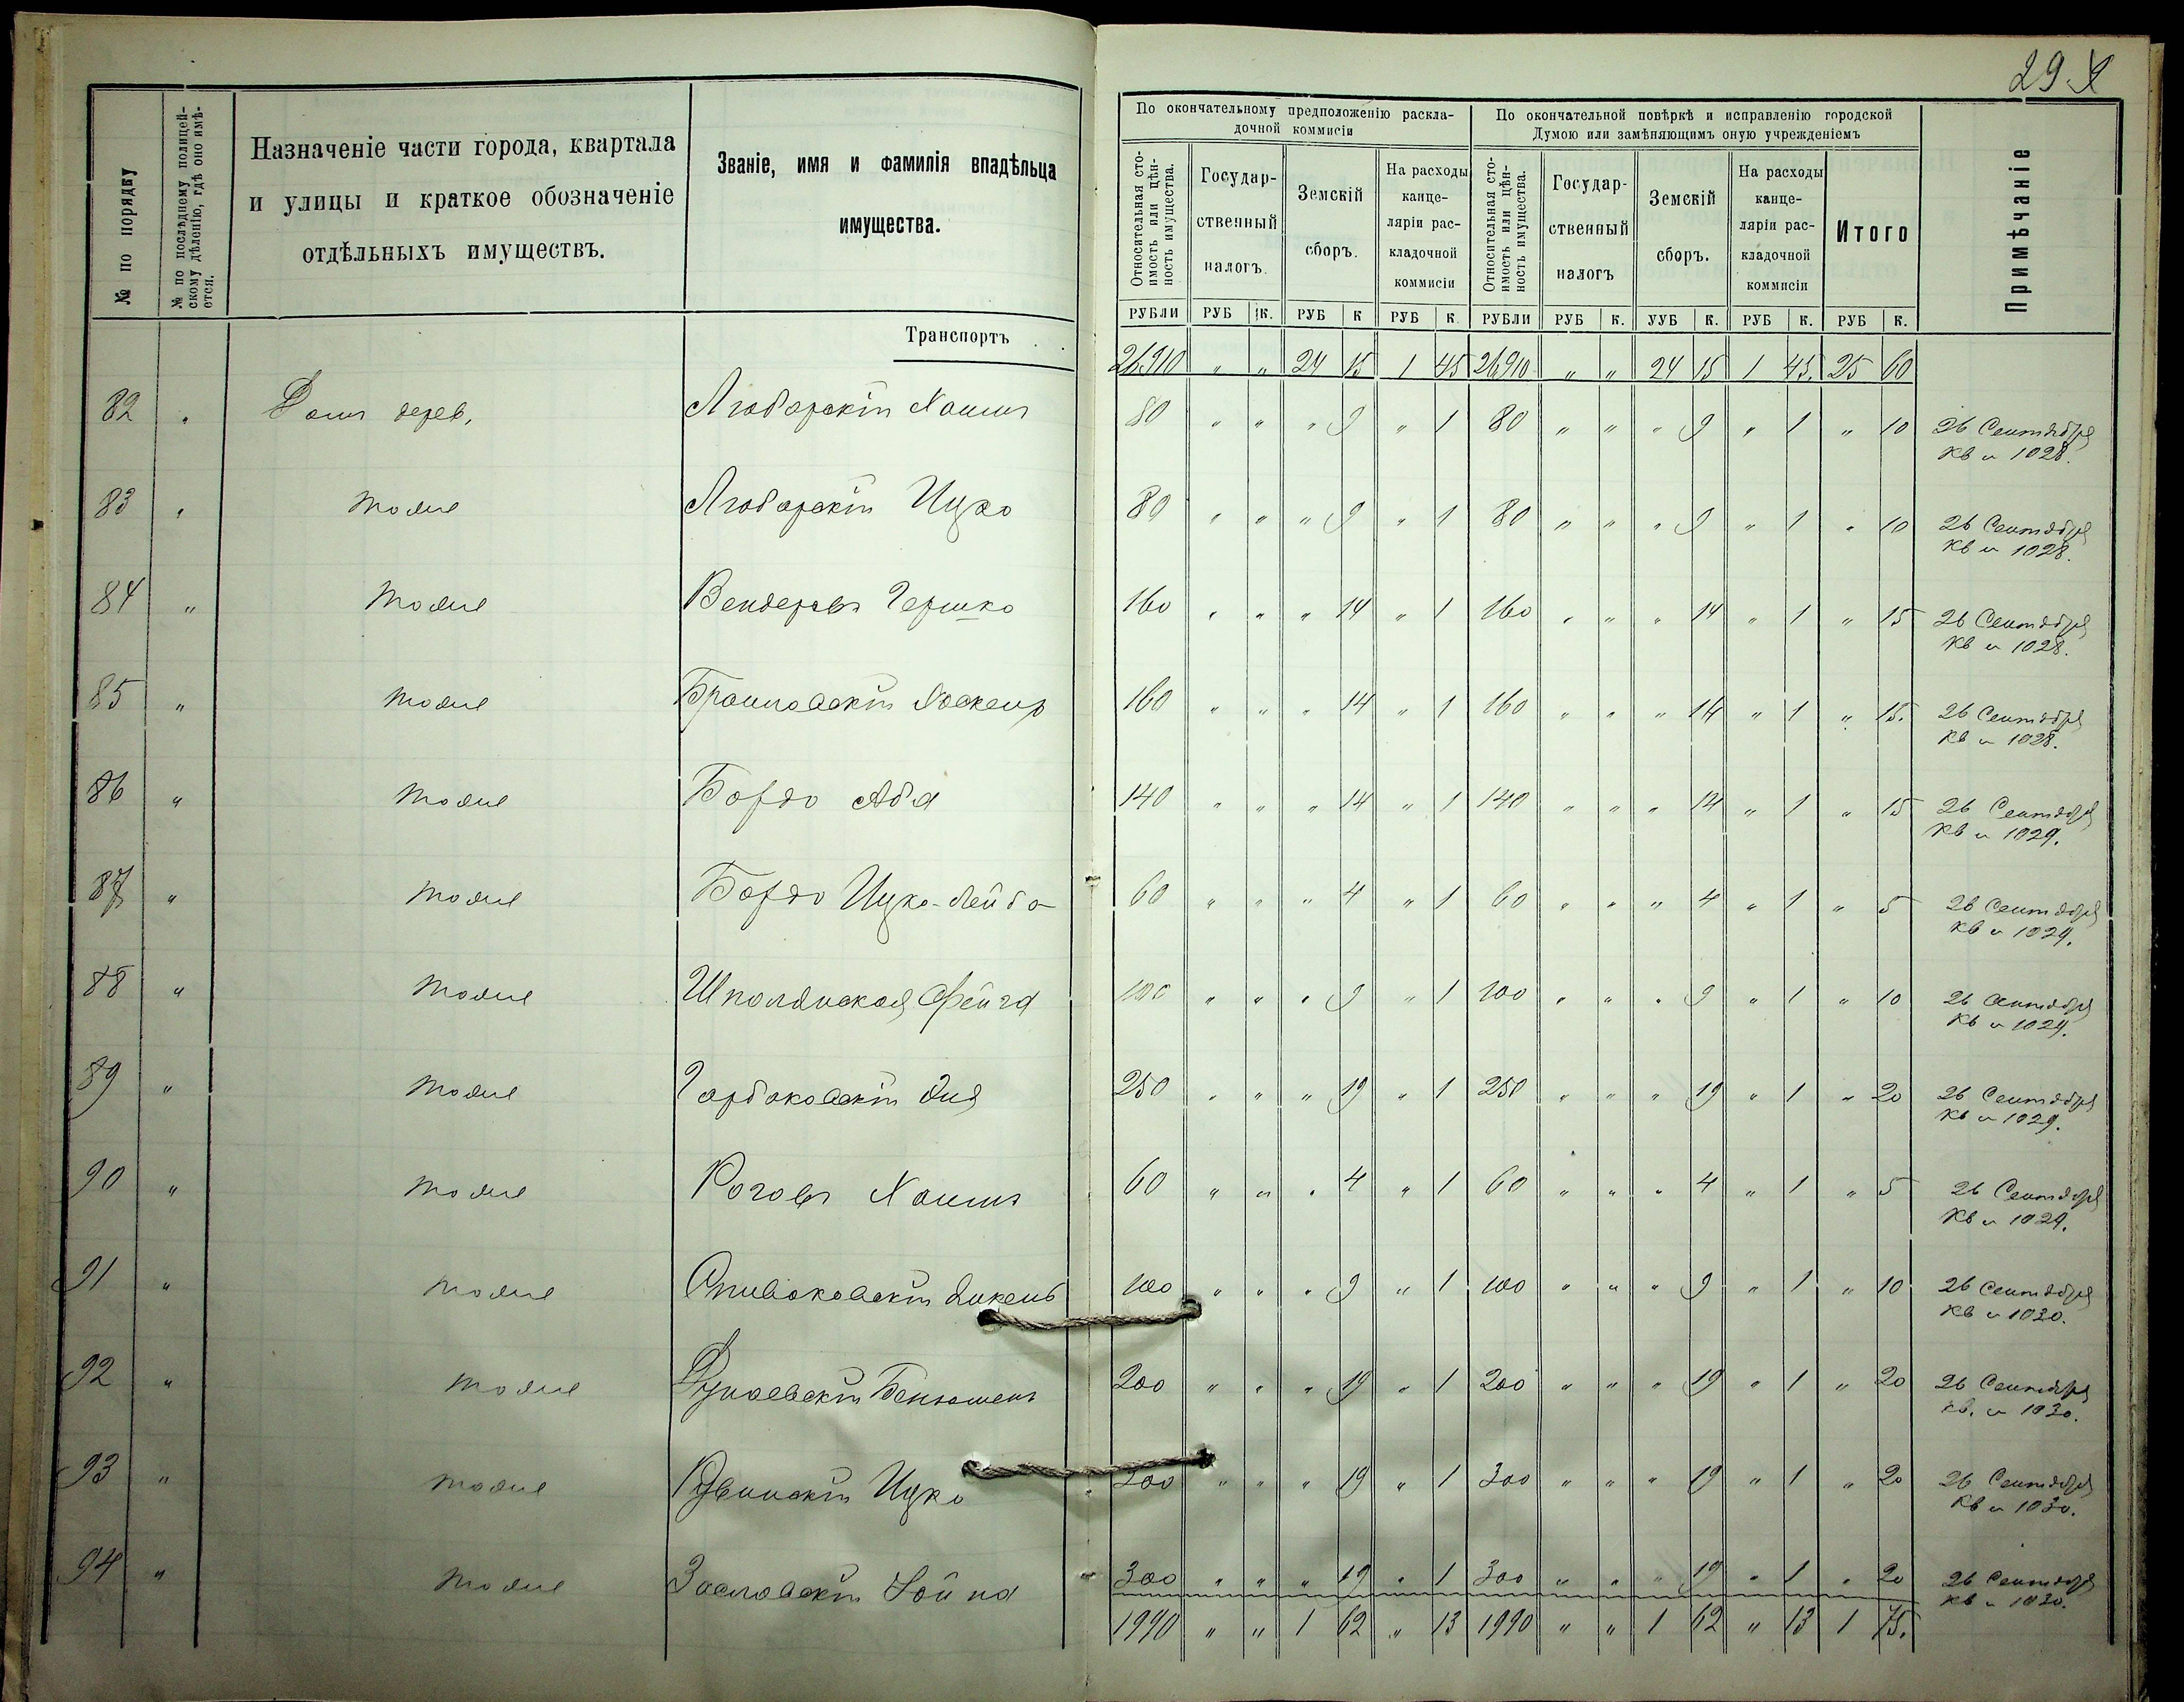 29
№ по порядку
№ по послѣднему полицей-
скому дѣленію, гдѣ оно имѣ-
ется.
Назначеніе части города, квартала
и улицы и краткое обозначеніе
отдѣльныхъ имуществъ.
Званіе, имя и фамилія владѣльца
имущества.
По окончательному предположенію раскла-
дочной коммисіи
Относительная сто-
имость или цѣн-
ность имущества.
Государ-
ственный
налогъ.
Земскій
сборъ.
На расходы
канце-
ляріи рас-
кладочной
коммисіи
По окончательной повѣркѣ и исправленію городской
Думою или замѣняющимъ оную учрежденіемъ
Относительная сто-
имость или цѣн-
ность имущества.
Государ-
ственный
налогъ
Земскій
сборъ.
На расходы
канце-
ляріи рас-
кладочной
коммисіи
Итого
Примѣчаніе
РУБЛИ РУБ К. РУБ К РУБ К. РУБЛИ РУБ К. УУБ К. РУБ К. РУБ К.
Транспортъ 26910 " " 24 15 1 45 26910 " " 24 15 1 45. 25 60
82 " Домъ дерев. Любарскій Хаимъ 80 " " " 9 " 1 80 " " " 9 " 1 " 10 26 Сентября
кв № 1028.
83 " тоже Любарскій Ицко 80 " " " 9 " 1 80 " " " 9 " 1 " 10 26 Сентября
кв № 1028.
84 " тоже Вендеровъ Гершко 160 " " " 14 " 1 160 " " " 14 " 1 " 15 26 Сентября
кв № 1028.
85 " тоже Браиловскій 160 " " " 14 " 1 160 " " " 14 " 1 " 15. 26 Сентября
кв № 1028.
86 " тоже Бордо Аба 140 " " " 14 " 1 140 " " " 14 " 1 " 15 26 Сентября
кв № 1029.
87 " тоже Бордо Ицко-Лейба 60 " " " 4 " 1 60 " " " 4 " 1 " 5 26 Сентября
кв № 1029.
88 " тоже Шполянская Фейга 100 " " " 9 " 1 100 " " " 9 " 1 " 10 26 Сентября
кв № 1029.
89 " тоже Горбаковскій 250 " " " 19 " 1 250 " " " 19 " 1 " 20 26 Сентября
кв № 1029.
90 " тоже Роговъ Хаимъ 60 " " " 4 " 1 60 " " " 4 " 1 " 5 26 Сентября
кв № 1029.
91 " тоже Спиваковскій 100 " " " 9 " 1 100 " " " 9 " 1 " 10 26 Сентября
кв № 1030.
92 " тоже Дунаевскій 200 " " " 19 " 1 200 " " " 19 " 1 " 20 26 Сентября
кв. № 1030.
93 " тоже Ицко 300 " " " 19 " 1 300 " " " 19 " 1 " 20 26 Сентября
кв № 1030.
94 " тоже Заславскій 300 " " " 19 " 1 300 " " " 19 " 1 " 20 26 Сентября
кв № 1030.
1990 " " 1 62 " 13 1990 " " 1 62 " 13 1 75.